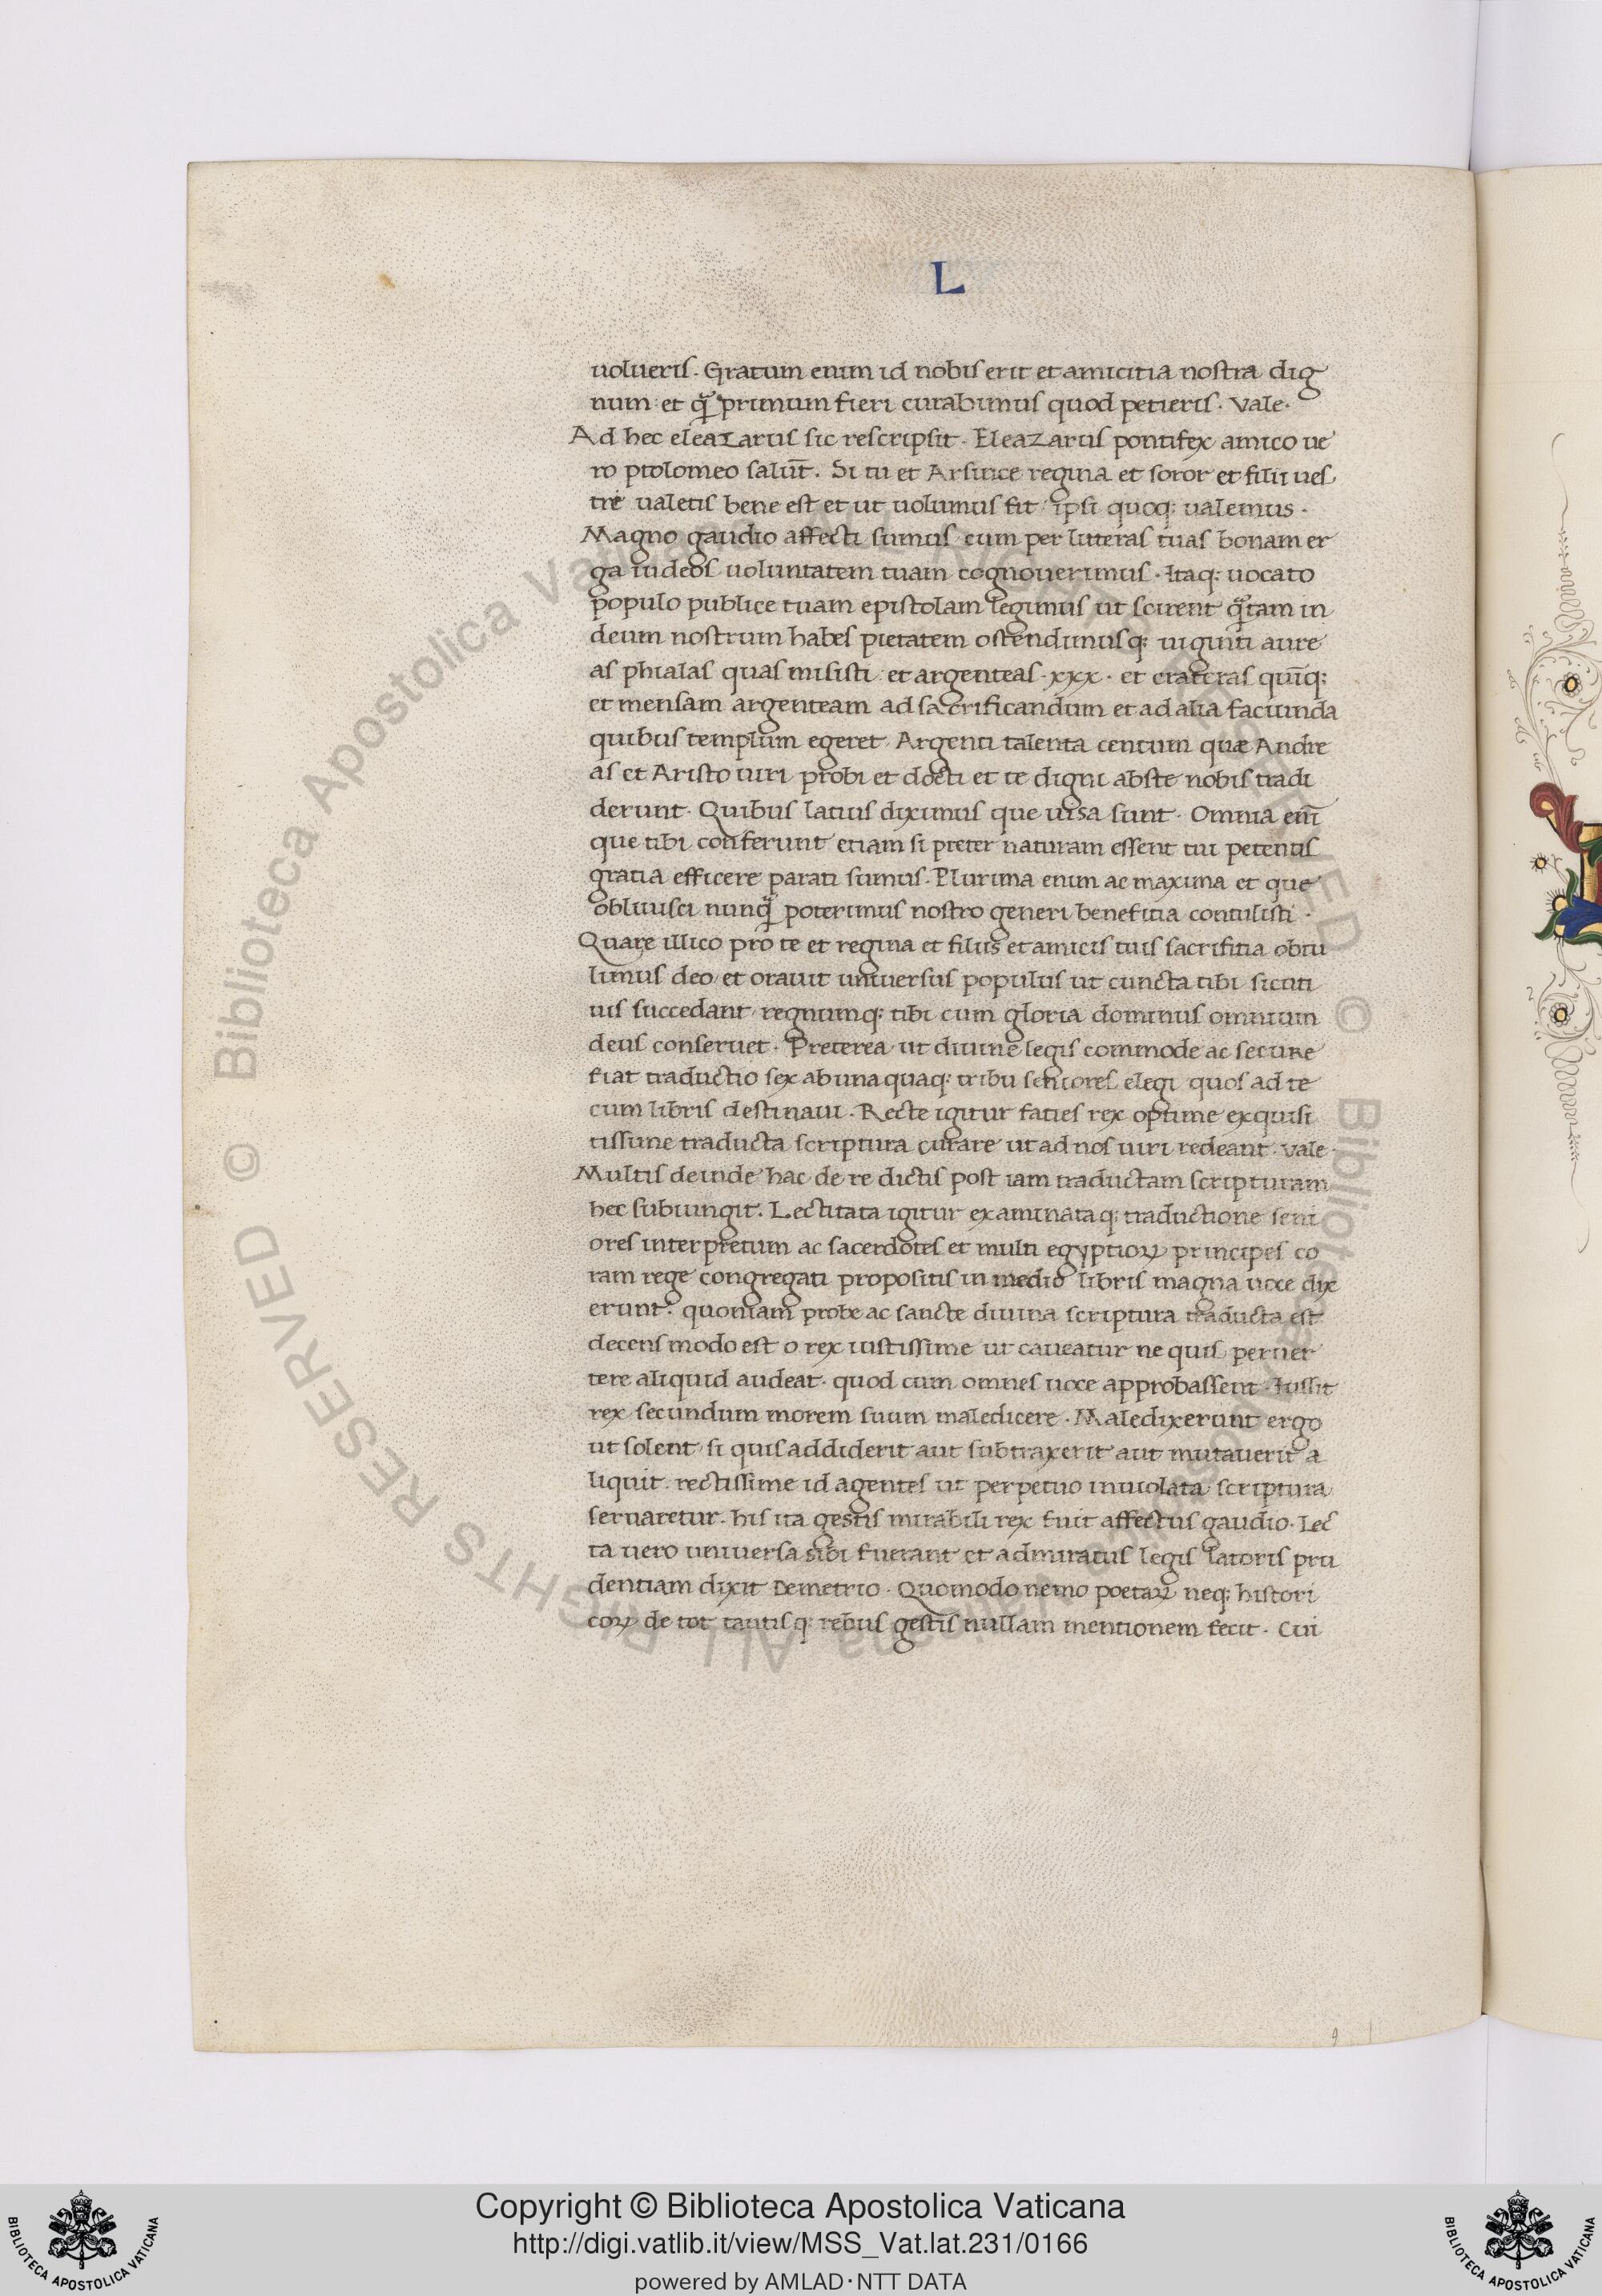 L
uolueris. Gratum enim id nobis erit et amicitia nostra dig
num et q̃ primum fieri curabimus quod petieris. Vale.
Ad hec eleazarus sic rescripsit. Eleazarus pontifex amico ue
ro ptolomeo salut̄. Si tu et Arsince regina et soror et filii ues
tri ualetis bene est et ut uolumus fit ipsi quoq; ualemus.
Magno gaudio affecti sumus cum per litteras tuas bonam er
ga iudeos uoluntatem tuam cognouerimus. Itaq; uocato
populo publice tuam epistolam legimus ut scirent q̃tam in
deum nostrum habes pietatem ostendimusq; uiginti aure
as phialas quas misisti et argenteas .xxx. et crateras quīq;
et mensam argenteam ad sacrificandum et ad alia faciunda
quibus templum egeret Argenti talenta centum quæ Andre
as et Aristo uiri probi et docti et te digni abste nobis tradi
derunt. Quibus latius diximus que uisa sunt. Omnia eni͞
que tibi conferunt etiam si preter naturam essent tui petentis
gratia efficere parati sumus. Plurima enim ac maxima et que
obliuisci nunq̃ poterimus nostro generi benefitia contulisti.
Quare illico pro te et regina et filiis et amicis tuis sacrifitia obtu
limus deo et orauit uniuersus populus ut cuncta tibi sicuti
uis succedant regnumq; tibi cum gloria dominus omnium
deus conseruet. Preterea ut diuine legis commode ac secure
fiat traductio sex ab una quaq; tribu seniores elegi quos ad te
cum libris destinaui. Recte igitur faties rex optime exquisi
tissime traducta scriptura curare ut ad nos uiri redeant. Vale.
Multis deinde hac de re dictis post iam traductam scripturam
hec subiungit. Lectitata igitur examinataq; traductione seni
ores interpretum ac sacerdotes et multi egyptioꝝ principes co
ram rege congregati propositis in medio libris magna uoce dix
erunt. quoniam probe ac sancte diuina scriptura traducta est
decens modo est o rex iustissime ut caueatur ne quis peruer
tere aliquid audeat. quod cum omnes uoce approbassent. Iussit
rex secundum morem suum maledicere. Maledixerunt ergo
ut solent si quis addiderit aut subtraxerit aut mutauerit a
liquit. rectissime id agentes ut perpetuo inuiolata scriptura
seruaretur. his ita gestis mirabili rex fuit affectus gaudio. Lec
ta uero uniuersa sibi fuerant et admiratus legis latoris pru
dentiam dixit Demetrio. Quomodo nemo poetaꝝ neq; histori
coꝝ de tot tantisq; rebus gestis nullam mentionem fecit. Cui
© Biblioteca Apostolica Vaticana ALL RIGHTS RESERVED © Biblioteca Apostolica Vaticana ALL RIGHTS RESERVED
Copyright © Biblioteca Apostolica Vaticana
http://digi.vatlib.it/view/MSS_Vat.lat.231/0166
powered by AMLAD·NTT DATA
BIBLIOTECA APOSTOLICA VATICANA
BIBLIOTECA APOSTOLICA VATICANA